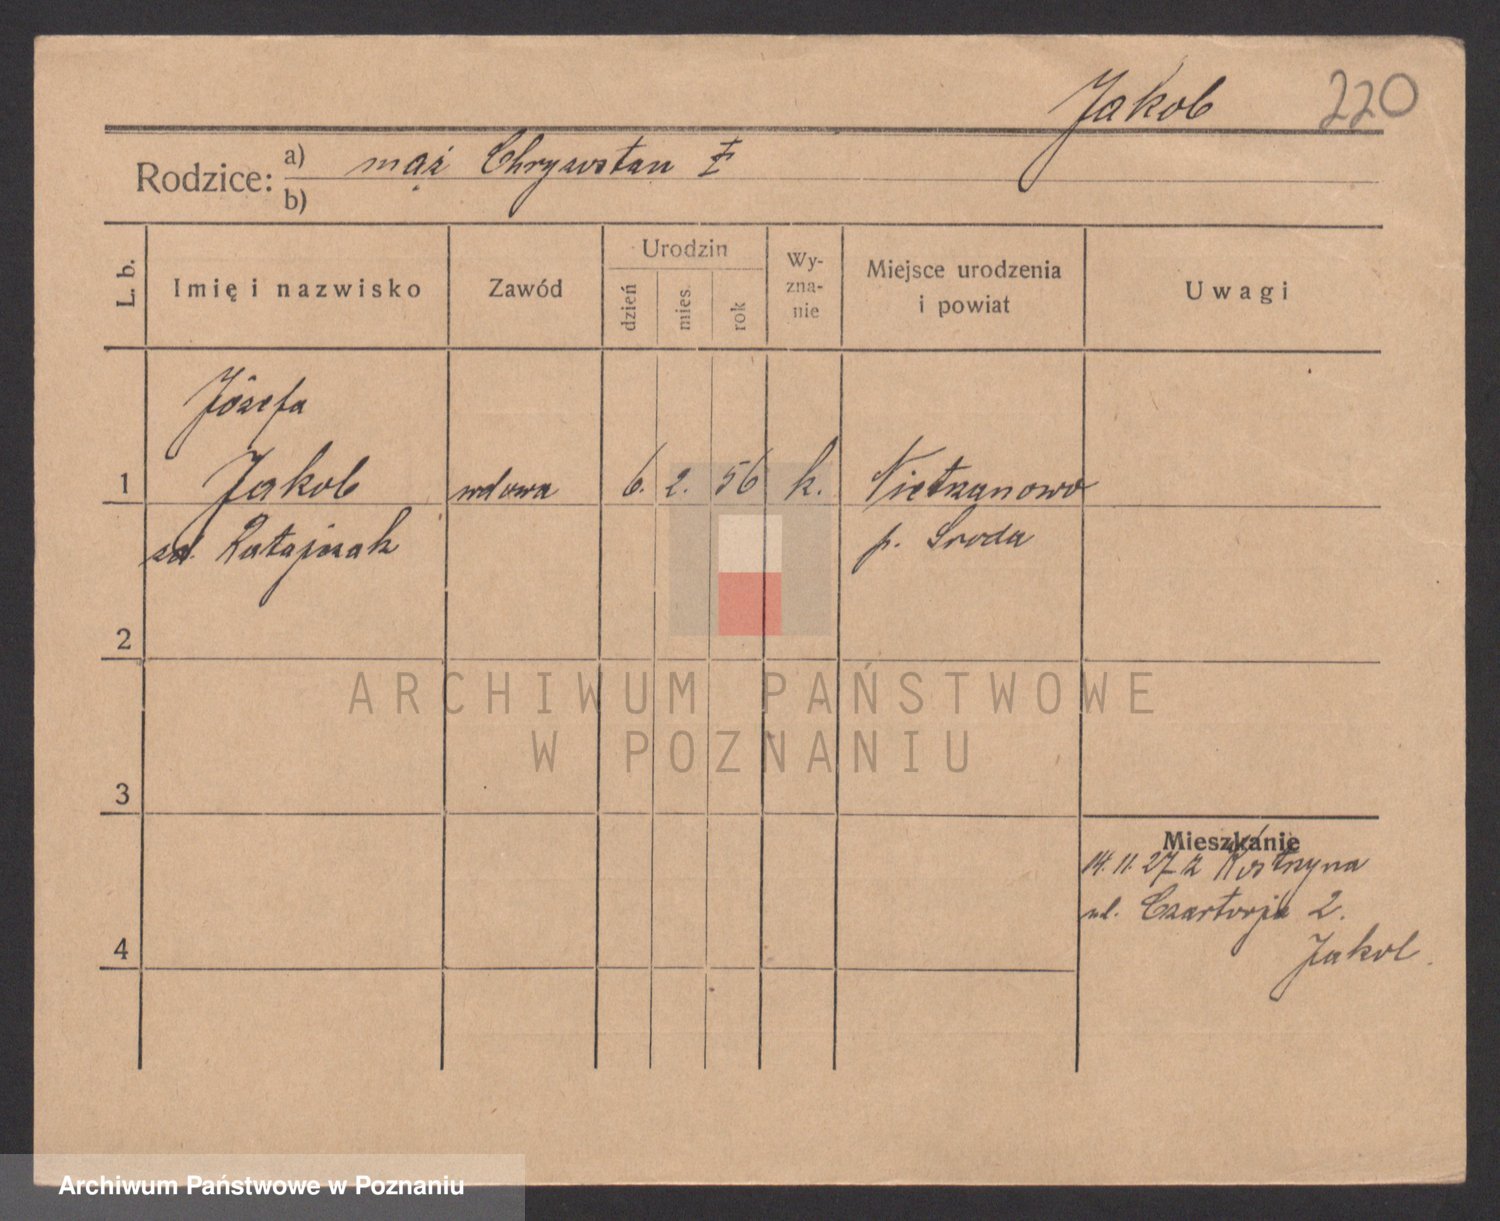 Jakob 220
Rodzice: a) mąż Chryzostan
b)
L. b.
Imię i nazwisko
Zawód
Urodzin
dzień
mies.
rok
Wy-
zna-
nie
Miejsce urodzenia
i powiat
Uwagi
Józefa
1 Jakob wdowa 6. 2. 56 k. Nietrzanowo
zd. Ratajczak p. Sroda
2
3
Mieszkanie
14.11.27 z Kostrzyna
ul. Czartorja 2.
4 Jakob.
ARCHIWUM PAŃSTWOWE
W POZNANIU
Archiwum Państwowe w Poznaniu